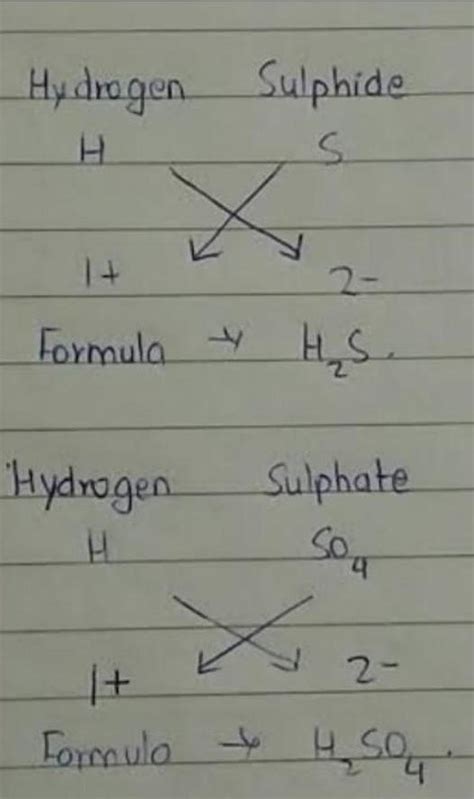 Hydrogen Sulphide
H S
1+ 2-
Formula → H₂S.
Hydrogen Sulphate
H SO₄
1+ 2-
Formula → H₂SO₄.